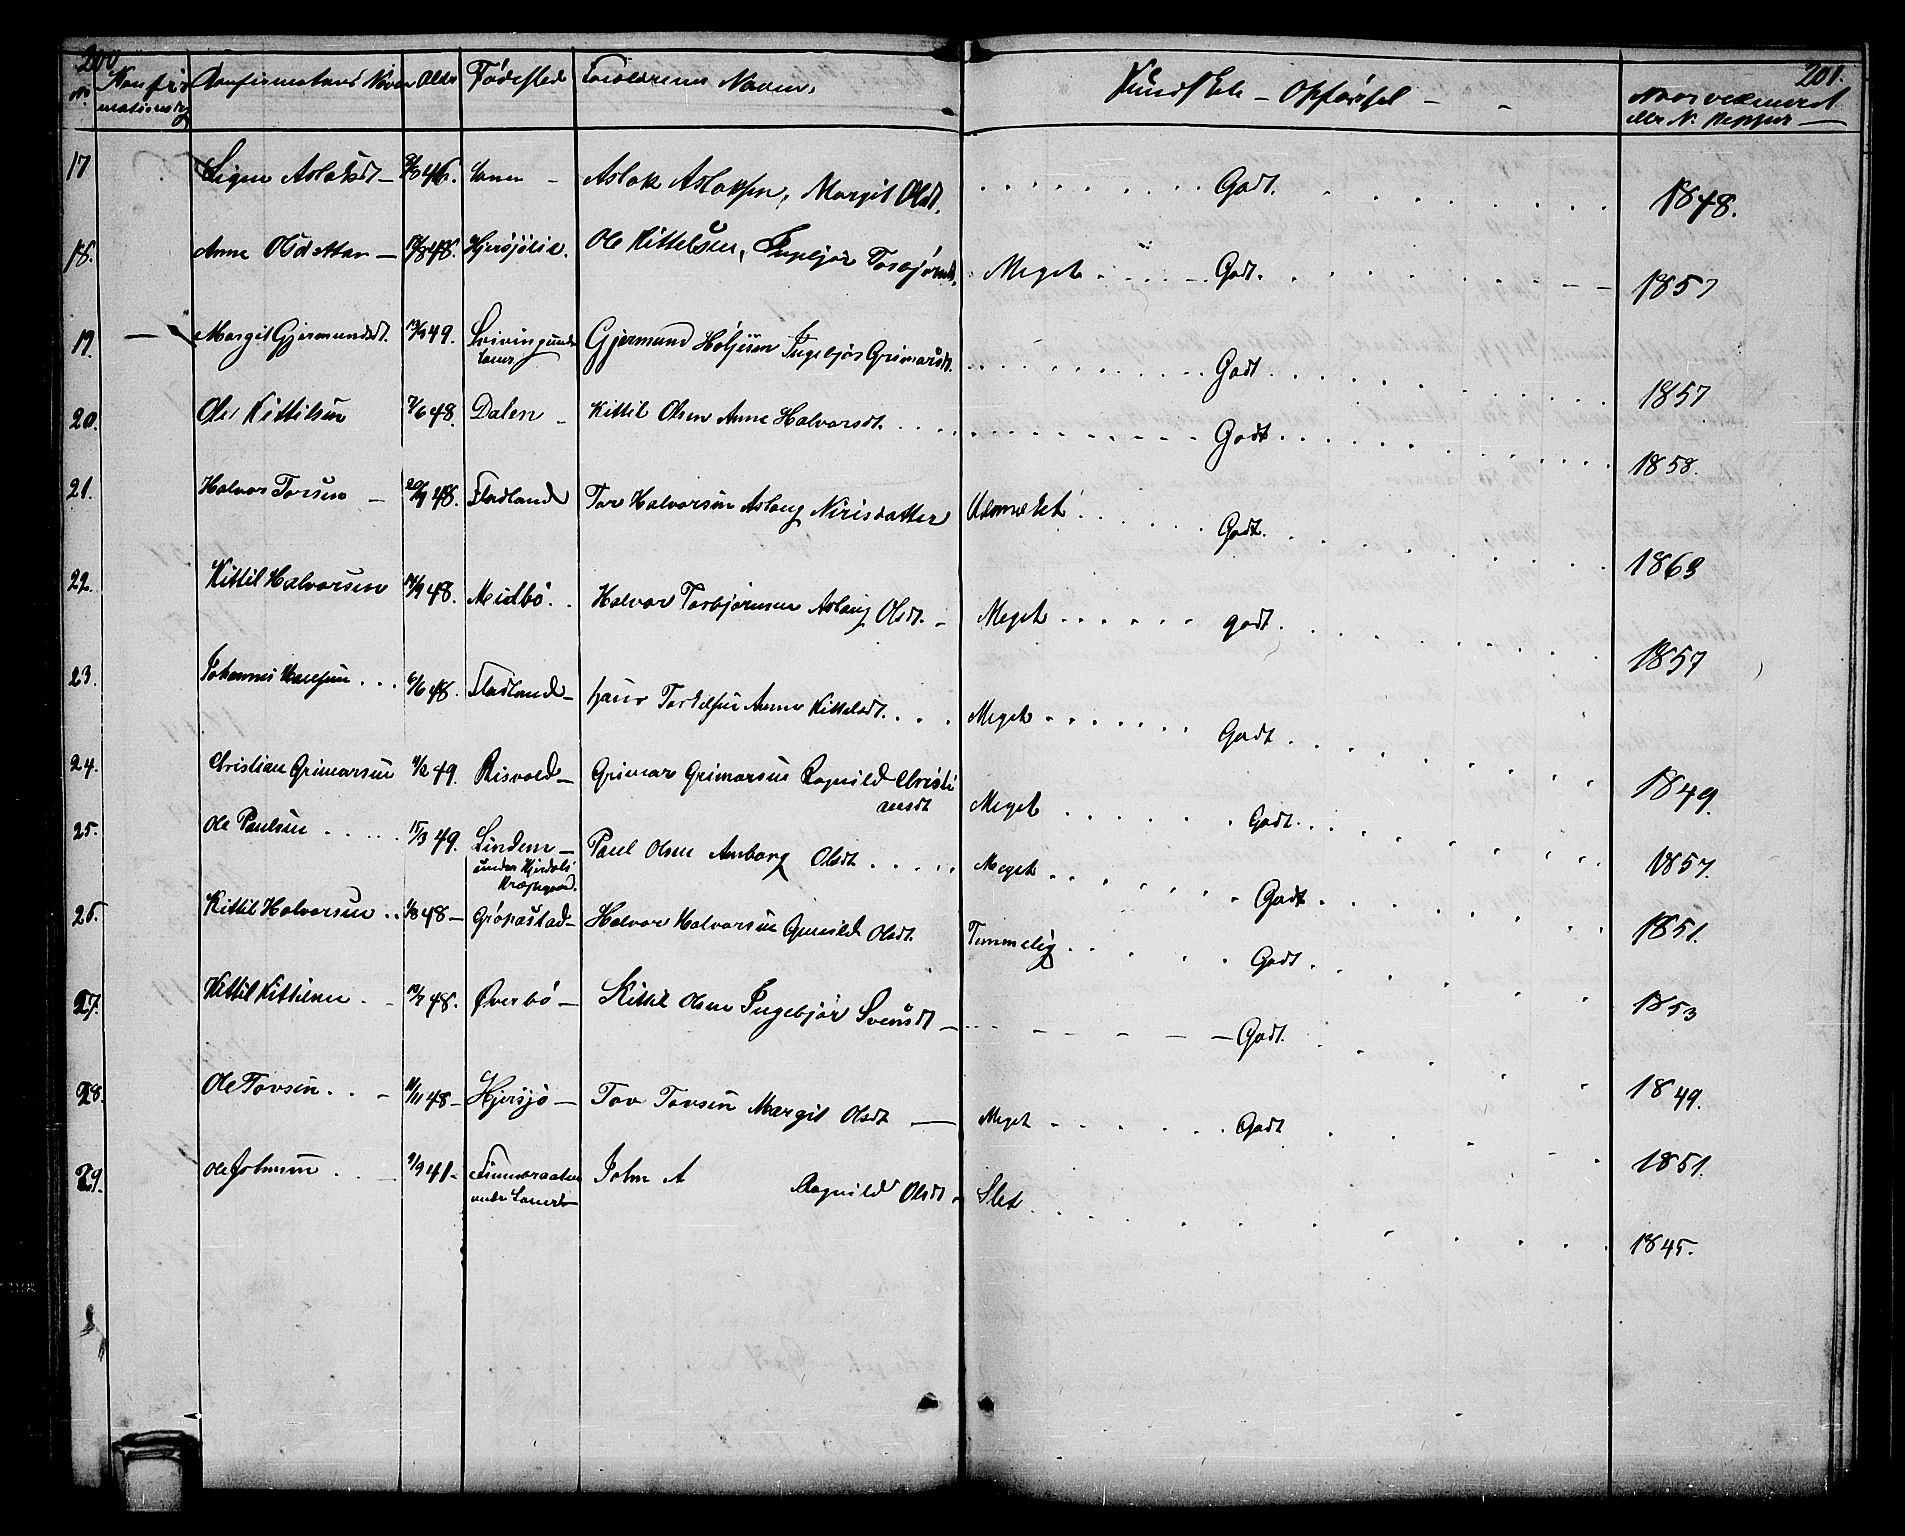 200 201.
Nr. Konfirmationsdag Konfirmatens Navn Alder Födested Forældrenes Navne, Kundskab - Opförsel - Naarvaccineret eller N. Kopper
17 Signe Aslaksdt - 46. Aslak Aslaksen, Margit Olsdt. Godt. 1848.
18. Anne Olsdatter - 48. Hjersjölie. Ole Kittelsen, Ingebjør Torbjörnsdt. Meget Godt. 1857
19. Margit Gjermundsdt. 49. Gjermund Höljesen Ingebjør Grimarsdt. Godt. 1857
20. Ole Kittilsen 7/6 48. Dalen - Kittil Olsen Anne Halvorsdt. Godt 1858.
21. Halvor Torsen - 48. Fladland Tor Halvorsen Aslaug Nirisdatter Udmærket Godt. 1863
22. Kittil Halvorsen 14/9 48. Meidbö. Halvor Torbjörnsen Aslaug Olsdt. - Meget godt. 1857
23. Johannes Hansen 6/6 48. Fladland - Hans Torkilsen Anne Kittelsdt. Meget Godt 1849.
24. Christian Grimarsen 49. Risvold - Grimar Grimarsen Ragnild Christi
ansdt Meget Godt. 1857.
25. Ole Paulsen 15/3 49. Linden - Paul Olsen Amborg Olsdt Meget Godt 1851.
under Hjerdals
Præstegaard.
26. Kittil Halvorsen 48 - Gröpastad - Halvor Halvorsen Gunild Olsdt. Temmelig Godt 1853
27. Kittil Kittilsen 48. Øverbö - Kittil Olsen Ingebjör Svensdt - Godt. 1849.
28. Ole Tovsen 11/11 48 - Hjersjö - Tov Tovsen Margit Olsdt - Meget Godt 1851.
29. Ole Johnsen 41 - John A Ragnild Olsdt - Slet 1845.